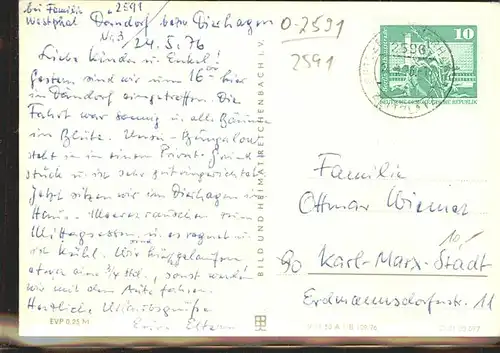 bei Familie 2591
Westphal Dändorf bez. Dierhagen
Nr. 3
24.5.76
O-2591
2591
Liebe Kinder u. Enkel!
Gestern sind wir um 16 Uhr hier
in Dändorf eingetroffen. Die
Fahrt war sonnig u. alle Bäume
in Blüte. Unser Bungalow
steht in einem Privat-Grund
stück u. ist sehr gut eingerichtet.
Jetzt sitzen wir in Dierhagen im
Haus Meeresrauschen zum
Mittagessen, u. es regnet u.
ist kühl. Wir sind hergelaufen
etwa ein 3/4 Std., sonst werden
wir mit dem Auto fahren.
Herzliche Urlaubsgrüße
Eure Eltern
EVP 0,25 M
BILD UND HEIMAT REICHENBACH I. V.
10
DEUTSCHE DEMOKRATISCHE REPUBLIK
2596
Familie
Ottmar Wiemet
10,-
90 Karl-Marx-Stadt
Erdmannsdorferstr. 11